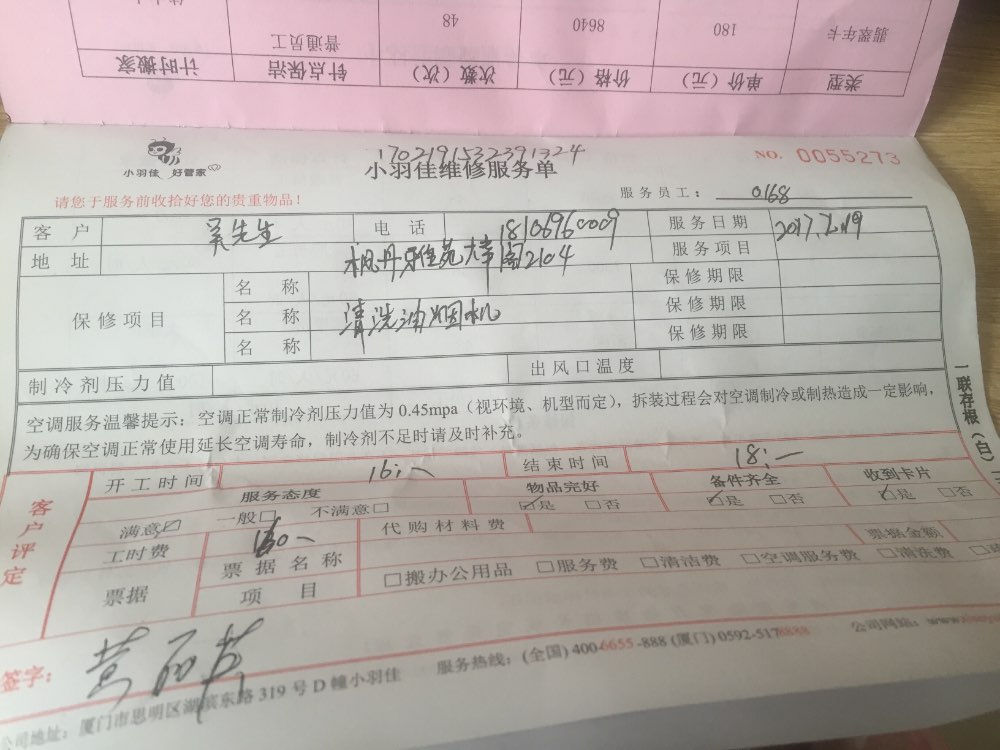 翡翠年卡 180 8640 48 普通员工
类型 单价（元） 价格（元） 次数（次） 针点保洁 计时搬家
1702191532391324
小羽佳 好管家
小羽佳维修服务单
NO. 0055273
请您于服务前收拾好您的贵重物品！
服务员工： 0168
客户 吴先生 电话 18106960009 服务日期 2017.2.19
地址 枫丹雅佳苑大幸阁2104 服务项目
保修项目
名称 保修期限
名称 清洗油烟机 保修期限
名称 保修期限
制冷剂压力值 出风口温度
空调服务温馨提示：空调正常制冷剂压力值为 0.45mpa（视环境、机型而定），拆装过程会对空调制冷或制热造成一定影响，
为确保空调正常使用延长空调寿命，制冷剂不足时请及时补充。
一联存根（白）
客户评定
开工时间 16:一 结束时间 18:一
服务态度 物品完好 备件齐全 收到卡片
满意☑ 一般□ 不满意□ ☑是 □否 ☑是 □否 ☑是 □否
工时费 160一 代购材料费 票据金额
票据 票据名称
项目 □搬办公用品 □服务费 □清洁费 □空调服务费 □清洗费
签字：
公司地址：厦门市思明区湖滨东路 319 号 D 幢小羽佳 服务热线：(全国) 400-6655-888 (厦门) 0592-5178888 公司网站：www.